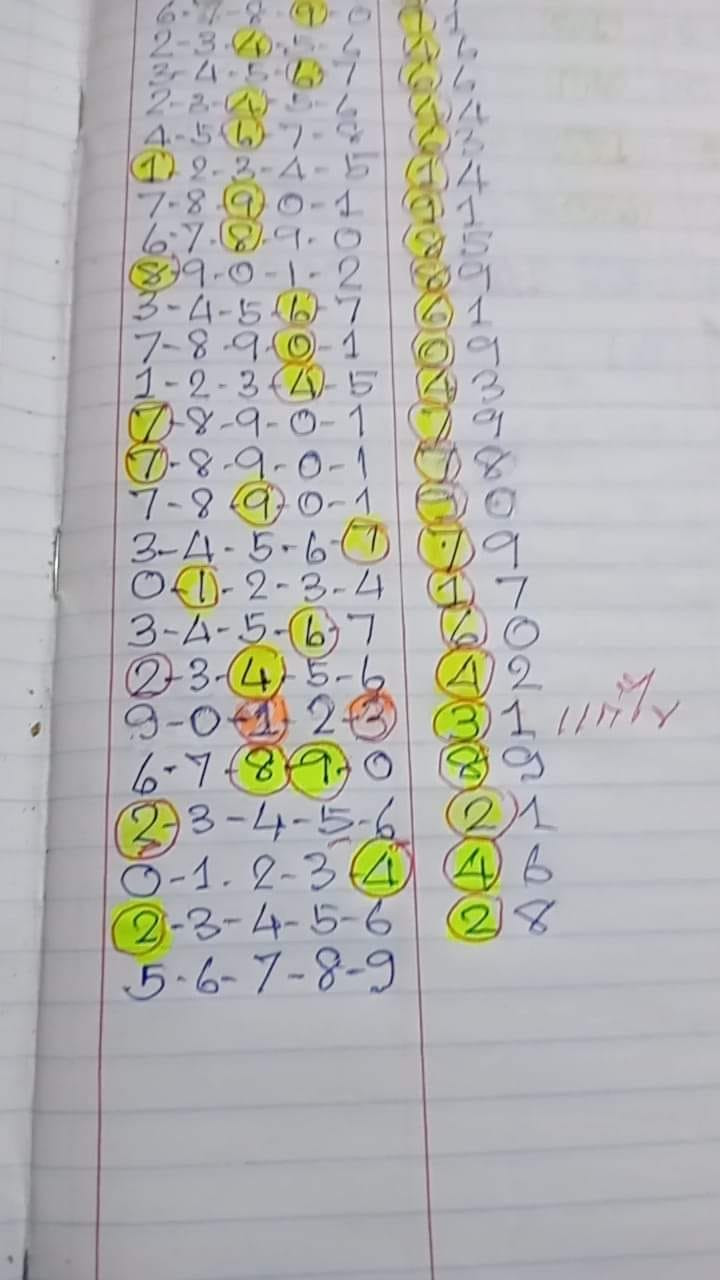 6-7-8-9-0 9 1
2-3-4-5-6 4 6
3-4-5-6-7 6 6
2-3-4-5-6 4 4
4-5-6-7-8 3
1-2-3-4-5 1 4
7-8-9-0-1 9 1
6-7-8-9-0 8 5
8-9-0-1-2 8 9
3-4-5-6-7 6 1
7-8-9-0-1 0 9
1-2-3-4-5 4 3
7-8-9-0-1 7 9
7-8-9-0-1 7 8
7-8-9-0-1 9 0
3-4-5-6-7 7 9
0-1-2-3-4 1 7
3-4-5-6-7 6 0
2-3-4-5-6 4 2
9-0-1-2-3 3 1
6-7-8-9-0 8 9
2-3-4-5-6 2 1
0-1-2-3-4 4 6
2-3-4-5-6 2 8
5-6-7-8-9